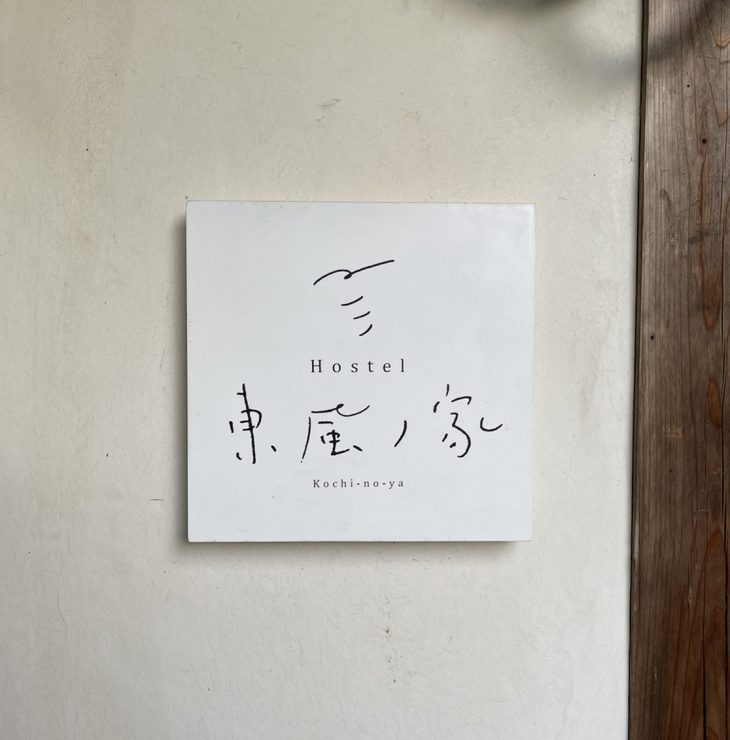 Hostel
東風ノ家
Kochi-no-ya